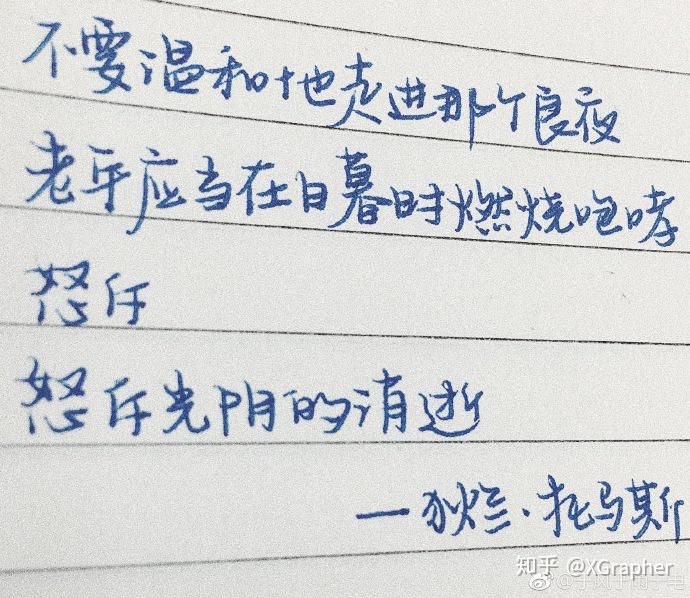 不要温和地走进那个良夜
老年应当在日暮时燃烧咆哮
怒斥
怒斥光阴的消逝
—狄兰·托马斯
知乎 @XGrapher